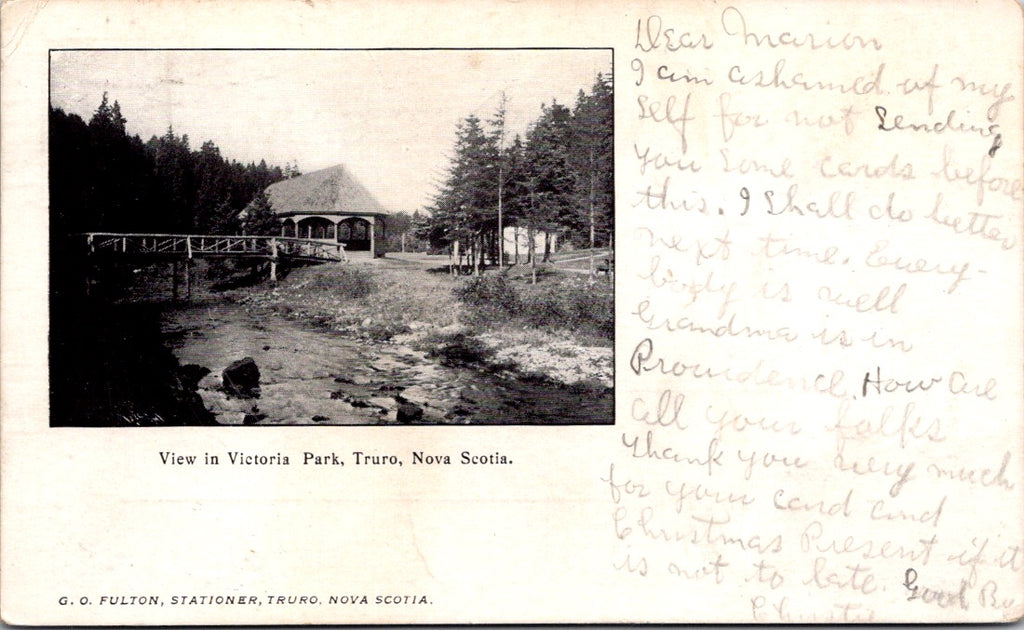 Dear Marion
I am ashamed of my
self for not Sending
you some cards before
this. I Shall do better
next time. Every-
body is well
Grandma is in
Providence. How are
all your folks
Thank you very much
for your card and
Christmas Present if it
is not to late. Good By
View in Victoria Park, Truro, Nova Scotia.
G. O. FULTON, STATIONER, TRURO, NOVA SCOTIA.